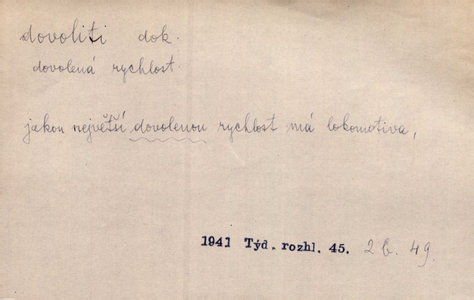 dovoliti dok.
dovolená rychlost.
jakou největší dovolenou rychlost má lokomotiva,
1941 Týd. rozhl. 45. 2 b. 49